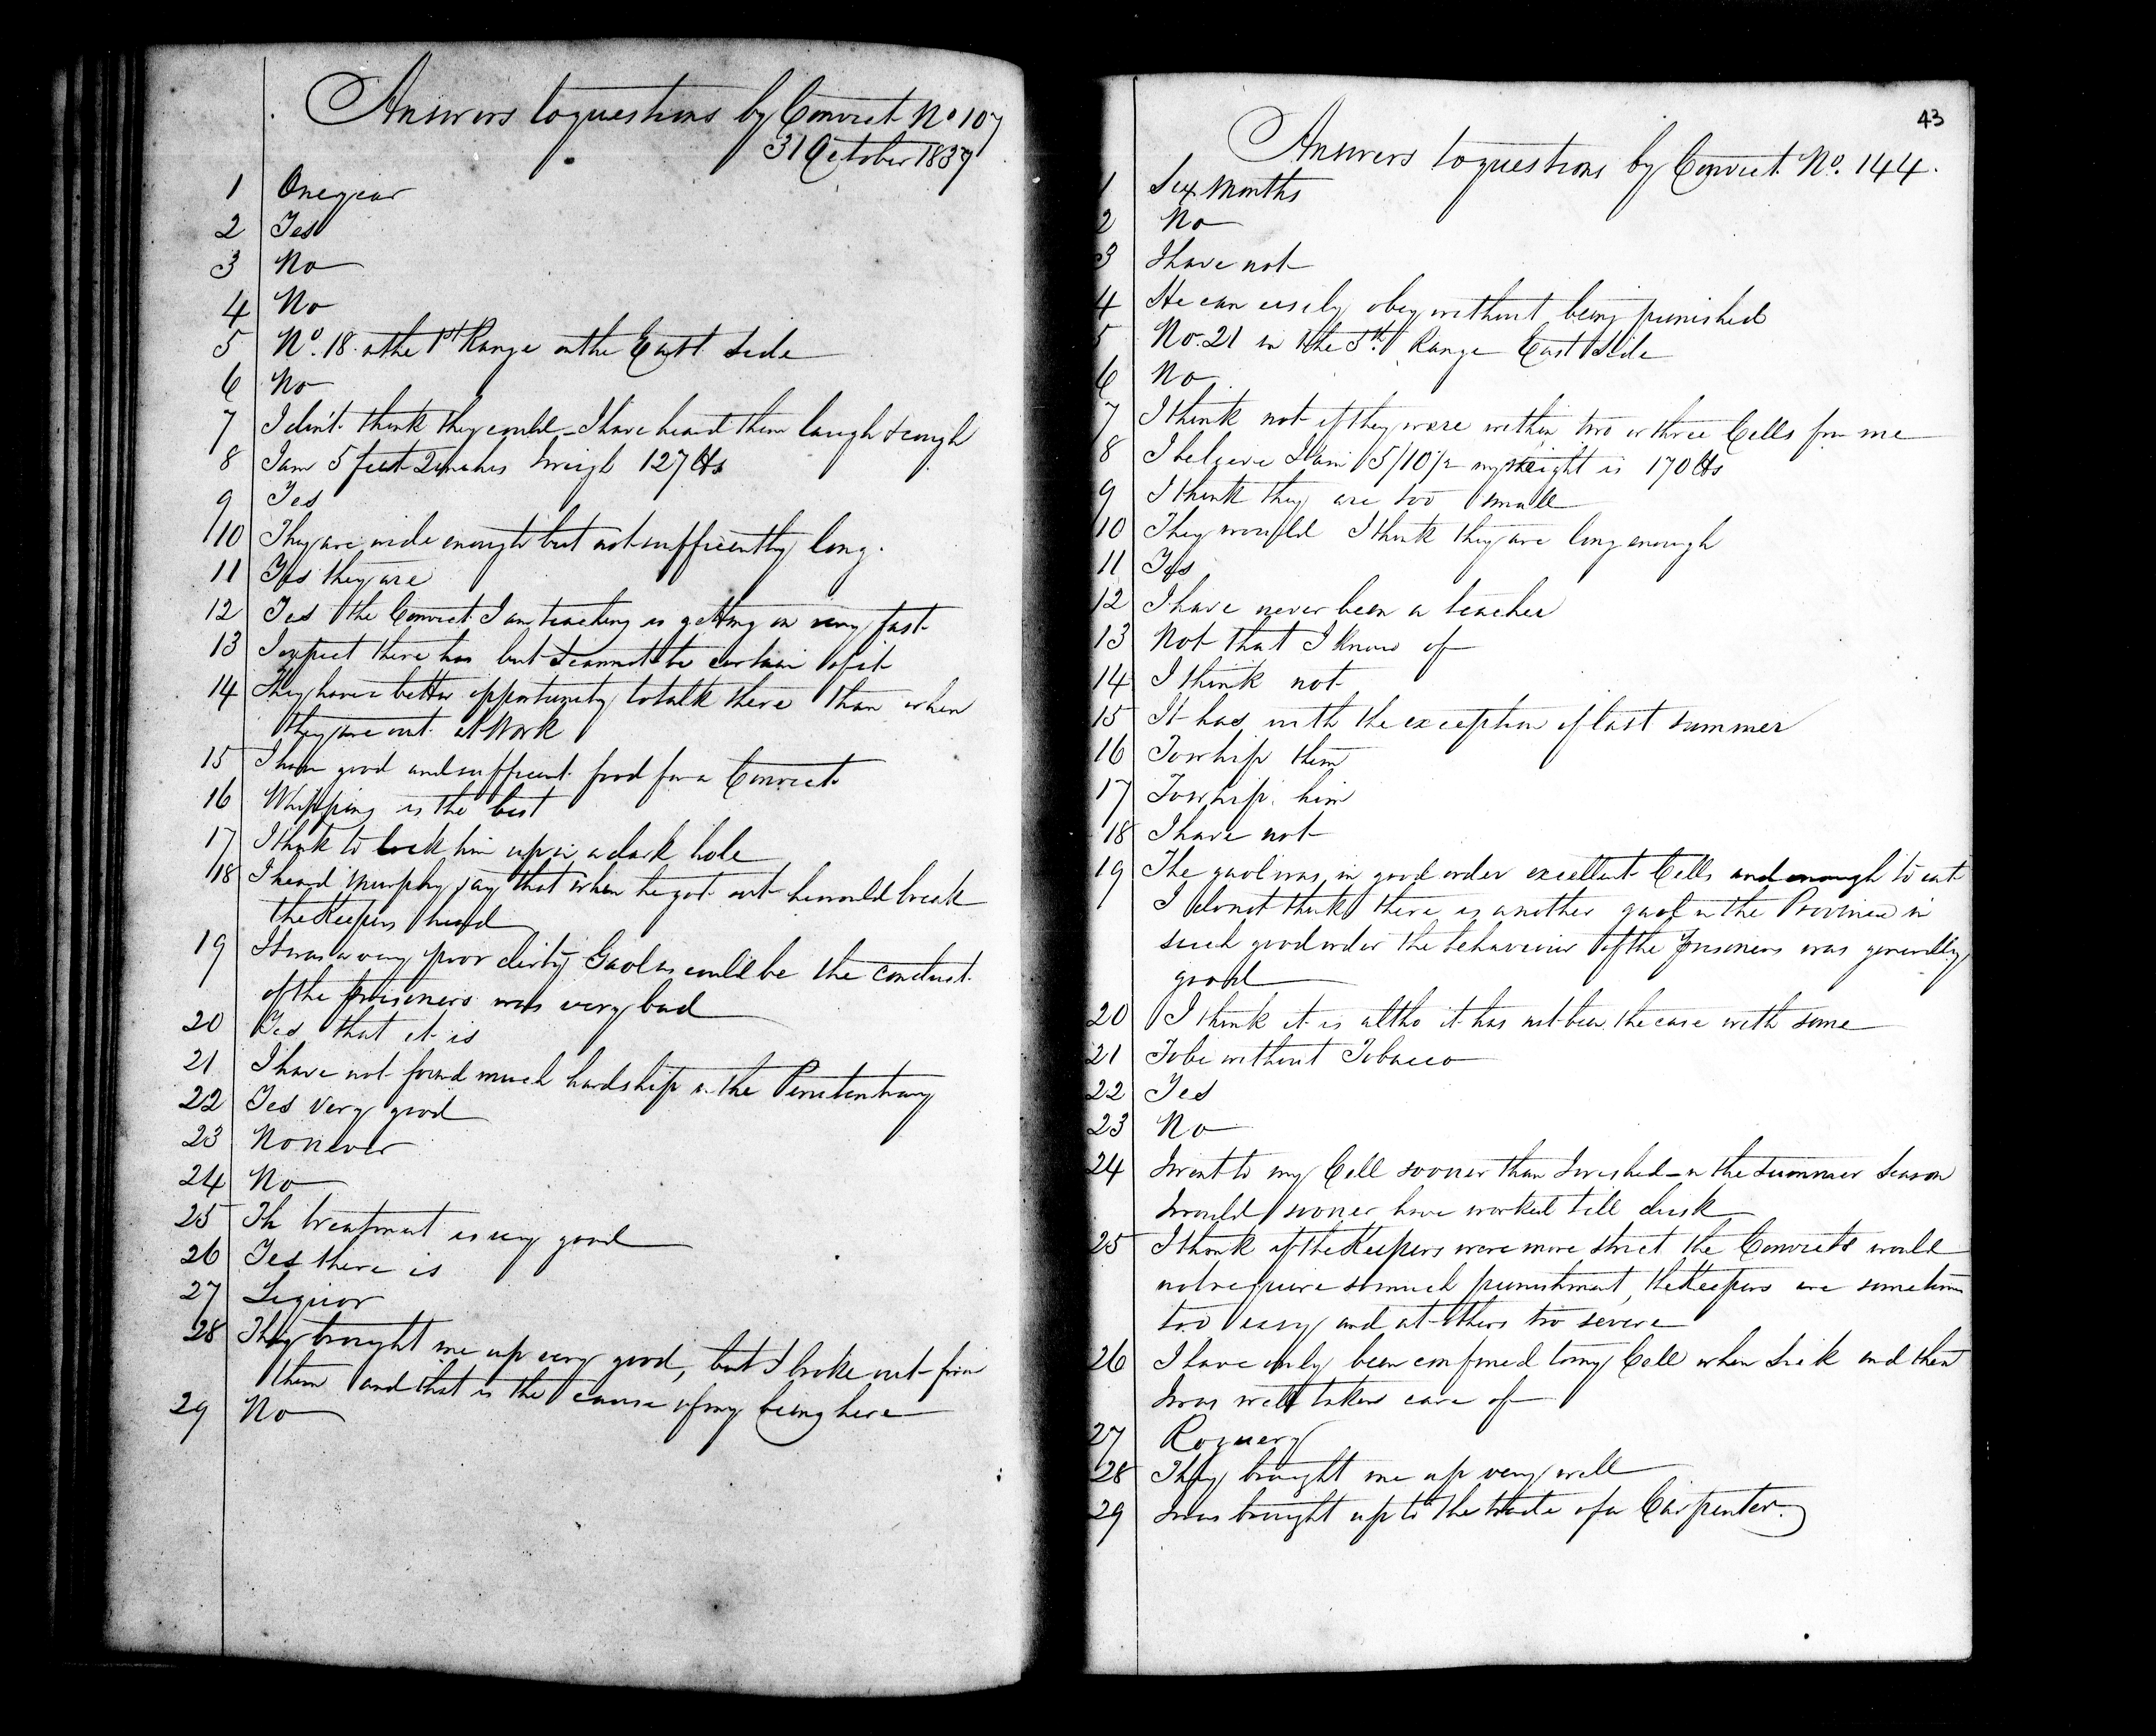 Answers to questions by Convict No 107
31 October 1837
1 One year
2 Yes
3 No
4 No
5 No. 18 in the 1st Range on the East Side
6 No
7 I don't think they could - I have heard them laugh & cough
8 I am 5 feet 2 inches & weigh 127 lbs
9 Yes
10 They are wide enough but not sufficiently long.
11 Yes they are
12 Yes the Convict I am teaching is getting on very fast
13 I expect there has but I cannot be certain of it
14 They have a better opportunity to talk there than when
they are out at Work
15 I have good and sufficient food for a Convict
16 Whipping is the best
17 I think to lock him up in a dark hole
18 I heard Murphy say that when he got out he would break
the Keepers head
19 It was a very poor dirty Gaol as could be the conduct
of the prisoners was very bad
20 Yes that it is
21 I have not found much hardship in the Penitentiary
22 Yes very good
23 No never
24 No
25 Th treatment is very good
26 Yes there is
27 Liquor
28 They brought me up very good, but I broke out from
them and that is the cause of my being here
29 No
43
Answers to questions by Convict No. 144.
1 Six Months
2 No
3 I have not
4 He can easily obey without being punished
5 No. 21 in the 5th Range East Side
6 No
7 I think not if they were within two or three Cells from me
8 I beleive I am 5/10 1/2 my weight is 170 lbs
9 I think they are too small
10 They would I think they are long enough
11 Yes
12 I have never been a teacher
13 Not that I know of
14 I think not
15 It has with the exception of last summer
16 To whip them
17 To whip him
18 I have not
19 The gaol was in good order excellent Cells and enough to eat
I do not think there is another gaol in the Province in
such good order the behaviour of the prisoners was generally
good
20 I think it is altho it has not been the case with some
21 To be without Tobacco
22 Yes
23 No
24 I went to my Cell sooner than I wished - in the summer season
I would sooner have worked till dusk
25 I think if the Keepers were more strict the Convicts would
not require so much punishment, the Keepers are sometimes
too easy and at others too severe
26 I have only been confined to my Cell when sick and then
I was well taken care of
27 Roguery
28 They brought me up very well
29 I was brought up to the trade of a Carpenter.